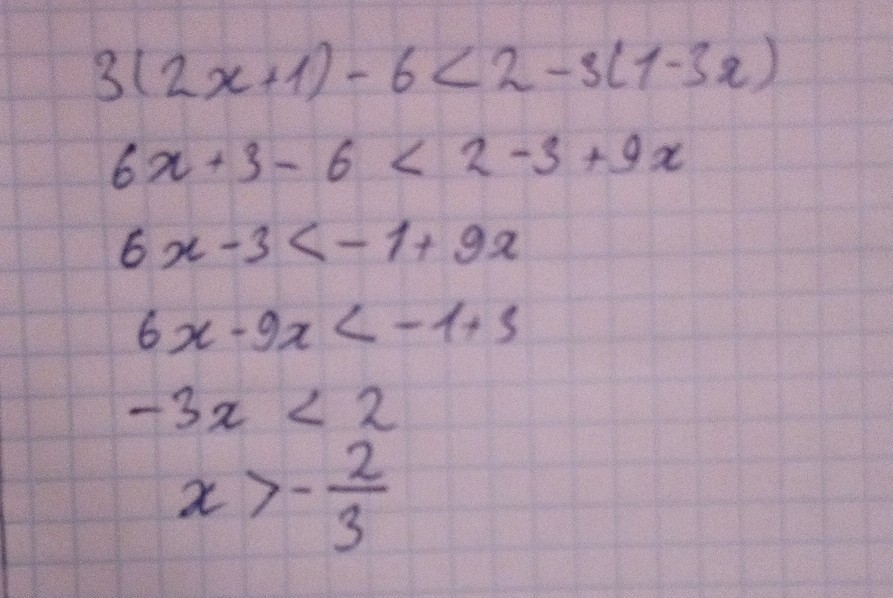 3(2x+1)-6<2-3(1-3x)
6x+3-6<2-3+9x
6x-3<-1+9x
6x-9x<-1+3
-3x<2
x>-2/3